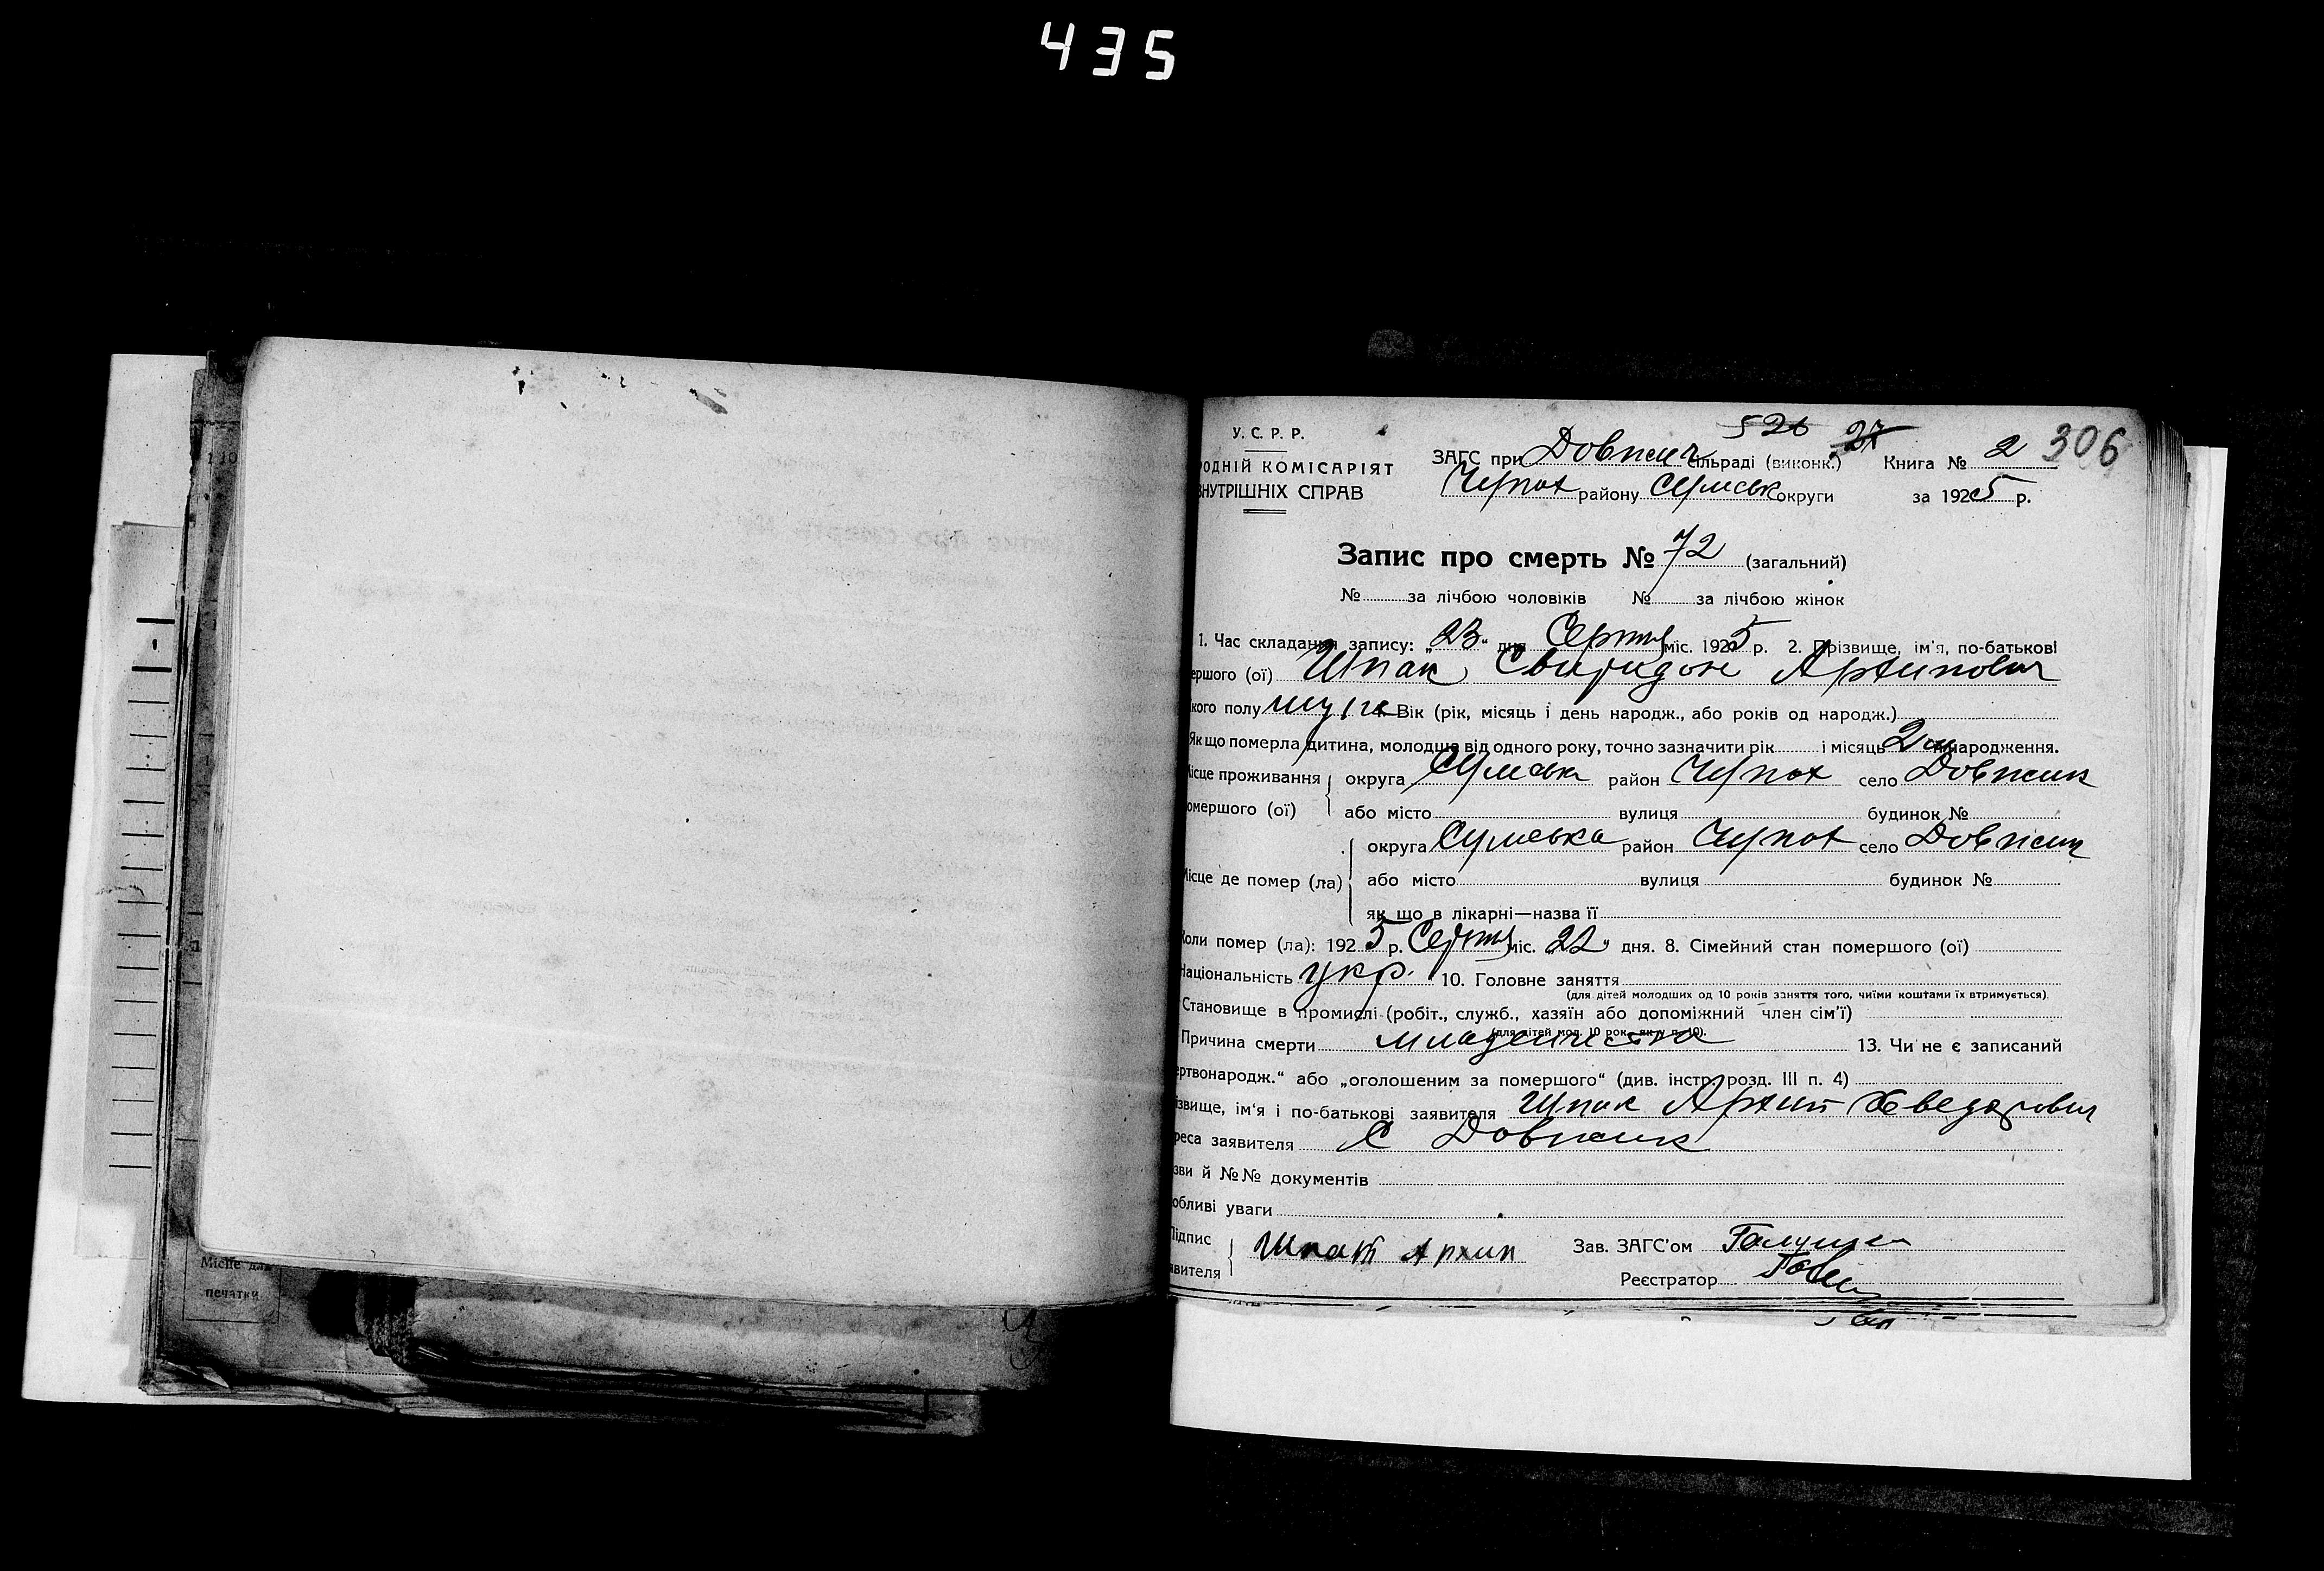 435
526 27 306
У. С. Р. Р.
ОДНІЙ КОМІСАРІЯТ
ВНУТРІШНІХ СПРАВ
ЗАГС при Довжик сільраді (виконк.) Книга № 2
Чупах району Сумськ округи за 1925 р.
Запис про смерть № 72 (загальний)
№ за лічбою чоловіків № за лічбою жінок
1. Час складання запису: „23" дня Серпня міс. 1925 р. 2. Прізвище, ім'я, по-батькові
ершого (ої) Шпак Свиридон Архипович
кого полу муж Вік (рік, місяць і день народж., або років од народж.)
Як що померла дитина, молодша від одного року, точно зазначити рік і місяць 2 м народження.
Місце проживання округа Сумськ район Чупах село Довжик
омершого (ої) або місто вулиця будинок №
округа Сумська район Чупах село Довжик
Місце де помер (ла) або місто вулиця будинок №
як що в лікарні—назва її
Коли помер (ла): 1925 р. Серпня міс. 22" дня. 8. Сімейний стан помершого (ої)
Національність укр. 10. Головне заняття
(для дітей молодших од 10 років заняття того, чиїми коштами їх втримується)
Становище в промислі (робіт., служб., хазяїн або допоміжний член сім'ї)
(для дітей мол. 10 рок. як у п. 10).
Причина смерти младенчества 13. Чи не є записаний
ертвонародж." або „оголошеним за помершого" (див. інстр. розд. III п. 4)
ізвище, ім'я і по-батькові заявителя Шпак Архип Хведорович
реса заявителя С Довжик
зви й №№ документів
обливі уваги
Підпис Шпак Архип Зав. ЗАГС'ом
явителя Реєстратор
Місце для
печатки